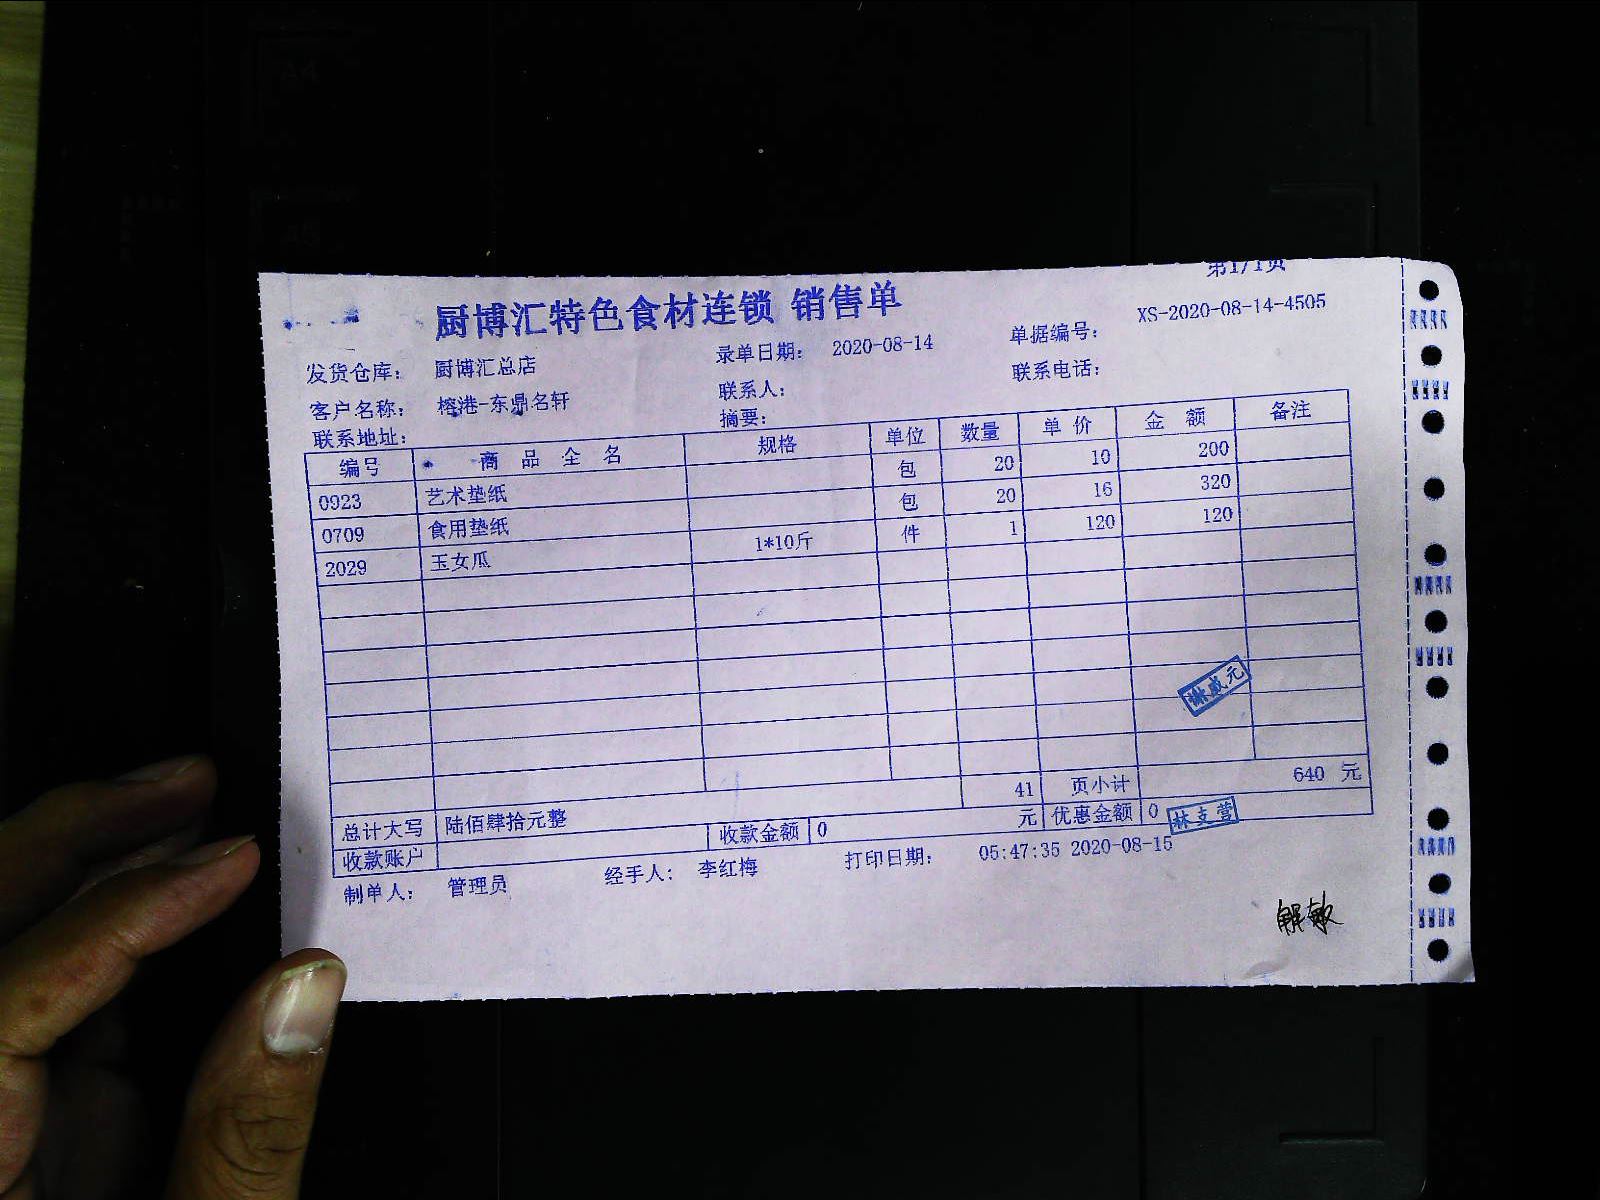 第1/1页
厨博汇特色食材连锁 销售单
发货仓库： 厨博汇总店 录单日期： 2020-08-14 单据编号： XS-2020-08-14-4505
客户名称： 榕港-东鼎名轩 联系人： 联系电话：
联系地址： 摘要：
编号 商品全名 规格 单位 数量 单价 金额 备注
0923 艺术垫纸 包 20 10 200
0709 食用垫纸 包 20 16 320
2029 玉女瓜 1*10斤 件 1 120 120
谢威元
41 页小计 640 元
总计大写 陆佰肆拾元整 收款金额 0 元 优惠金额 0
林支营
收款账户
制单人： 管理员 经手人： 李红梅 打印日期： 05:47:35 2020-08-15
解敏